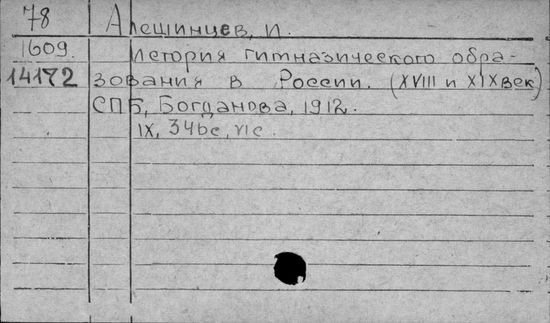 78 Алешинцев, И.
1609. История гимназического обра-
14172 зования в России. (XVIII и XIX век)
СПБ, Богданова, 1912.
IX, 346с, VIс.